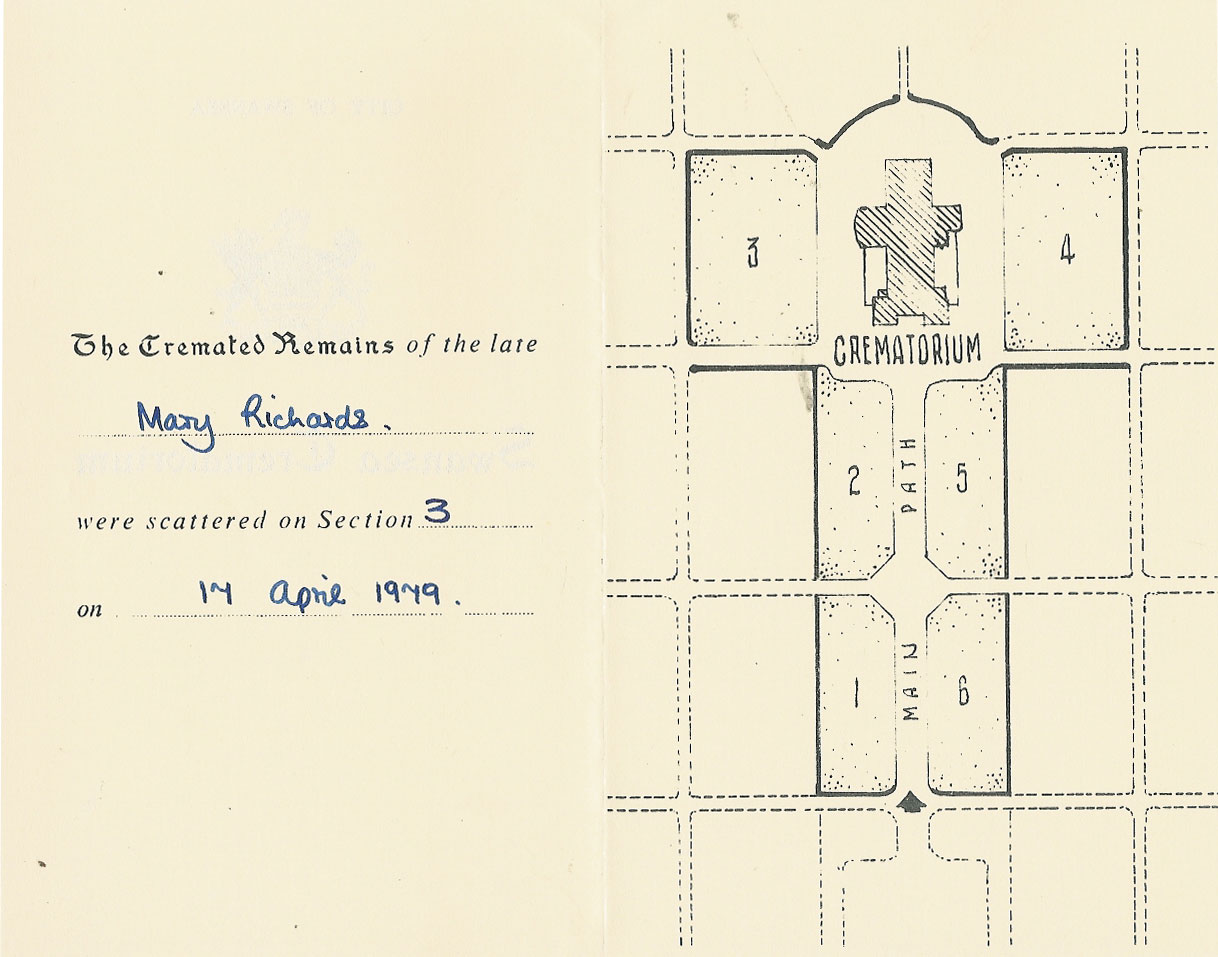 The Cremated Remains of the late
Mary Richards.
were scattered on Section 3
on 17 April 1979.
3
4
CREMATORIUM
2
PATH
5
1
MAIN
6